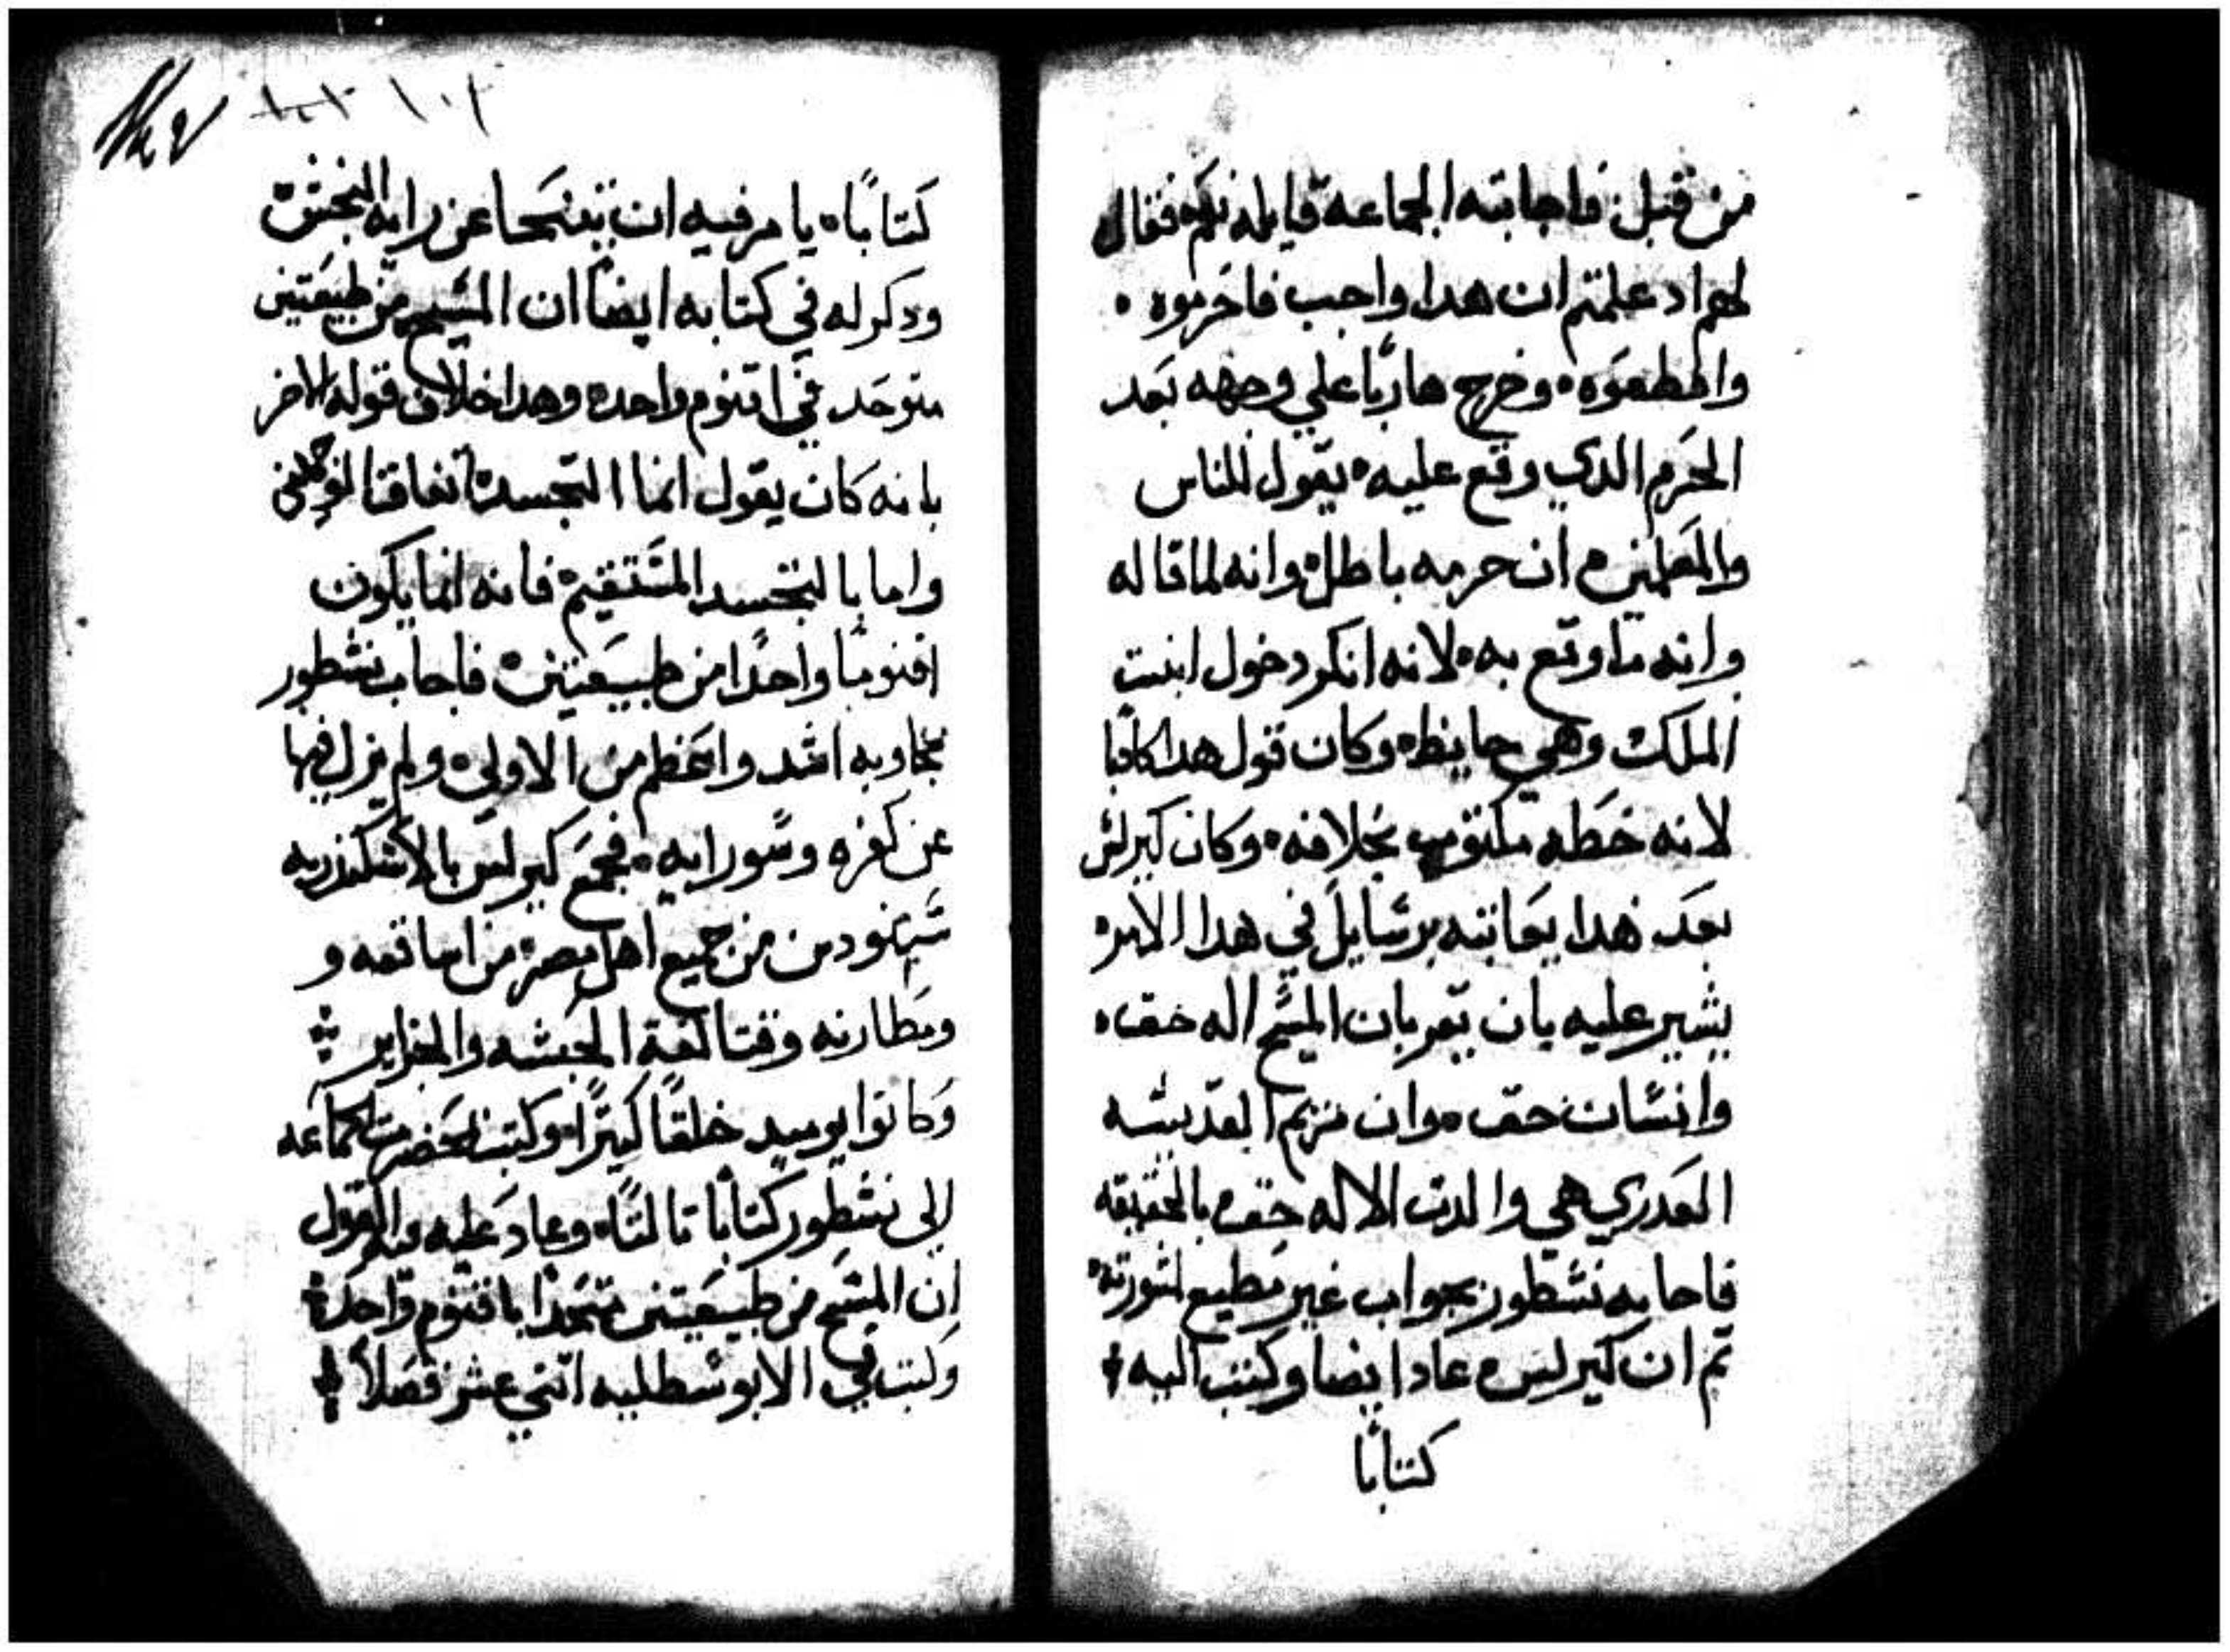 من قبل فاجابته الجماعة قايله نعم فقال
لهم اد علمتم ان هدا واجب فاحرموه
واقطعوه وخرج هاربًا علي وجهه بعد
الحرم الدي وقع عليه يقول للناس
والمعلمين ان حرمه باطل وانه لما قاله
وانه ما وقع به لانه انكر دخول ابنت
الملك وهي حايظه وكان قول هدا كادبا
لانه خطه مكتوب بخلافه وكان كيرلس
بعد هدا يعاتبه برسايل في هدا الامر
يشير عليه بان يقر بان المسيح اله حق
وانسان حق وان مريم القديسه
العدري هي والدت الاله حق بالحقيقه
فاجابه نسطور بجواب غير مطيع لشورته
تم ان كيرلس عاد ايضا وكتب اليه
كتابًا
١٠٢
كتابًا يامر فيه ان يتنحا عن رايه النجس
ودكر له في كتابه ايضًا ان المسيح من طبيعتين
متوحد في اقنوم واحد وهدا خلاف قوله الاخر
بانه كان يقول انما التجسد اتفاقنا
واما بالتجسد المستقيم فانه انما يكون
اقنومًا واحدًا من طبيعتين فاجاب نسطور
بمجاوبه اشد واعظم من الاولي ولم يزل فيها
عن كفره وسو رايه فجمع كيرلس بالاسكندريه
سينودس من جميع اهل مصر من اساقفه و
ومطارنه وقتالقة الحبشه والجزاير
وكانوا يوميد خلقًا كتيرًا وكتب بحضرت الجماعه
الى نسطور كتابًا تالتًا وعاد عليه فيه القول
ان المسيح من طبيعتين متحدًا باقنوم واحد
وكتب في الابوسطليه اتني عشر فصلاً